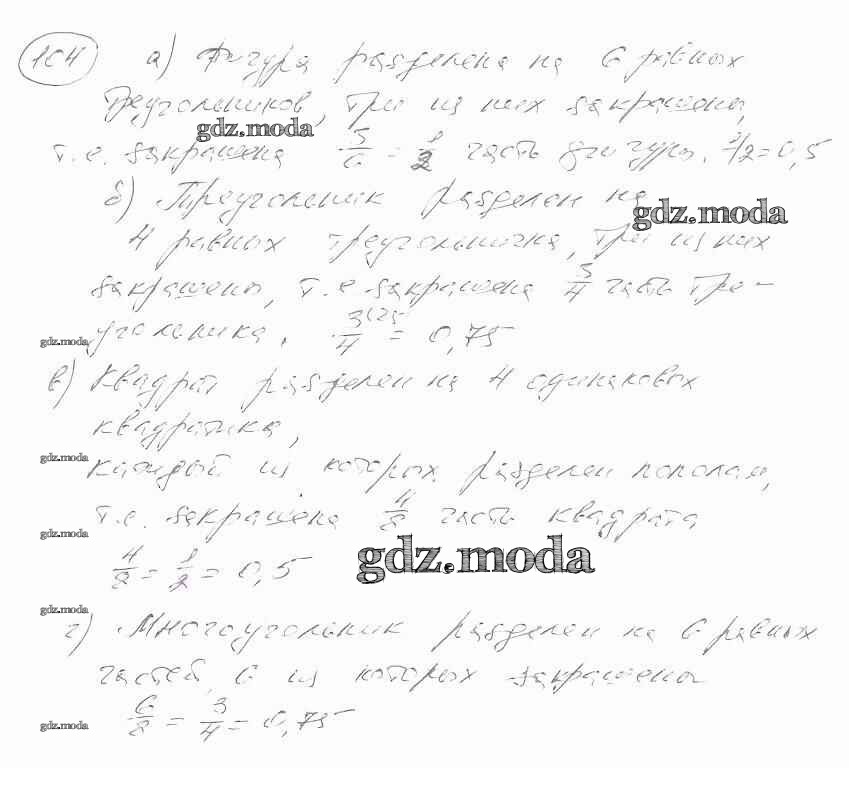 104 а) Фигура разделена на 6 равных
треугольников, три из них закрашены,
gdz.moda
т.е. закрашена 3/6 = 1/2 часть фигуры. 1/2 = 0,5
б) Треугольник разделен на
gdz.moda
4 равных треугольничка, три из них
закрашены, т.е. закрашена 3/4 часть тре-
gdz.moda
угольника. 3(25/4 = 0,75
в) Квадрат разделен на 4 одинаковых
квадратика,
gdz.moda
каждый из которых разделен пополам,
т.е. закрашена 4/8 часть квадрата
gdz.moda
gdz.moda
4/8 = 1/2 = 0,5
gdz.moda
г) Многоугольник разделен на 6 равных
частей, 6 из которых закрашены
gdz.moda
6/8 = 3/4 = 0,75